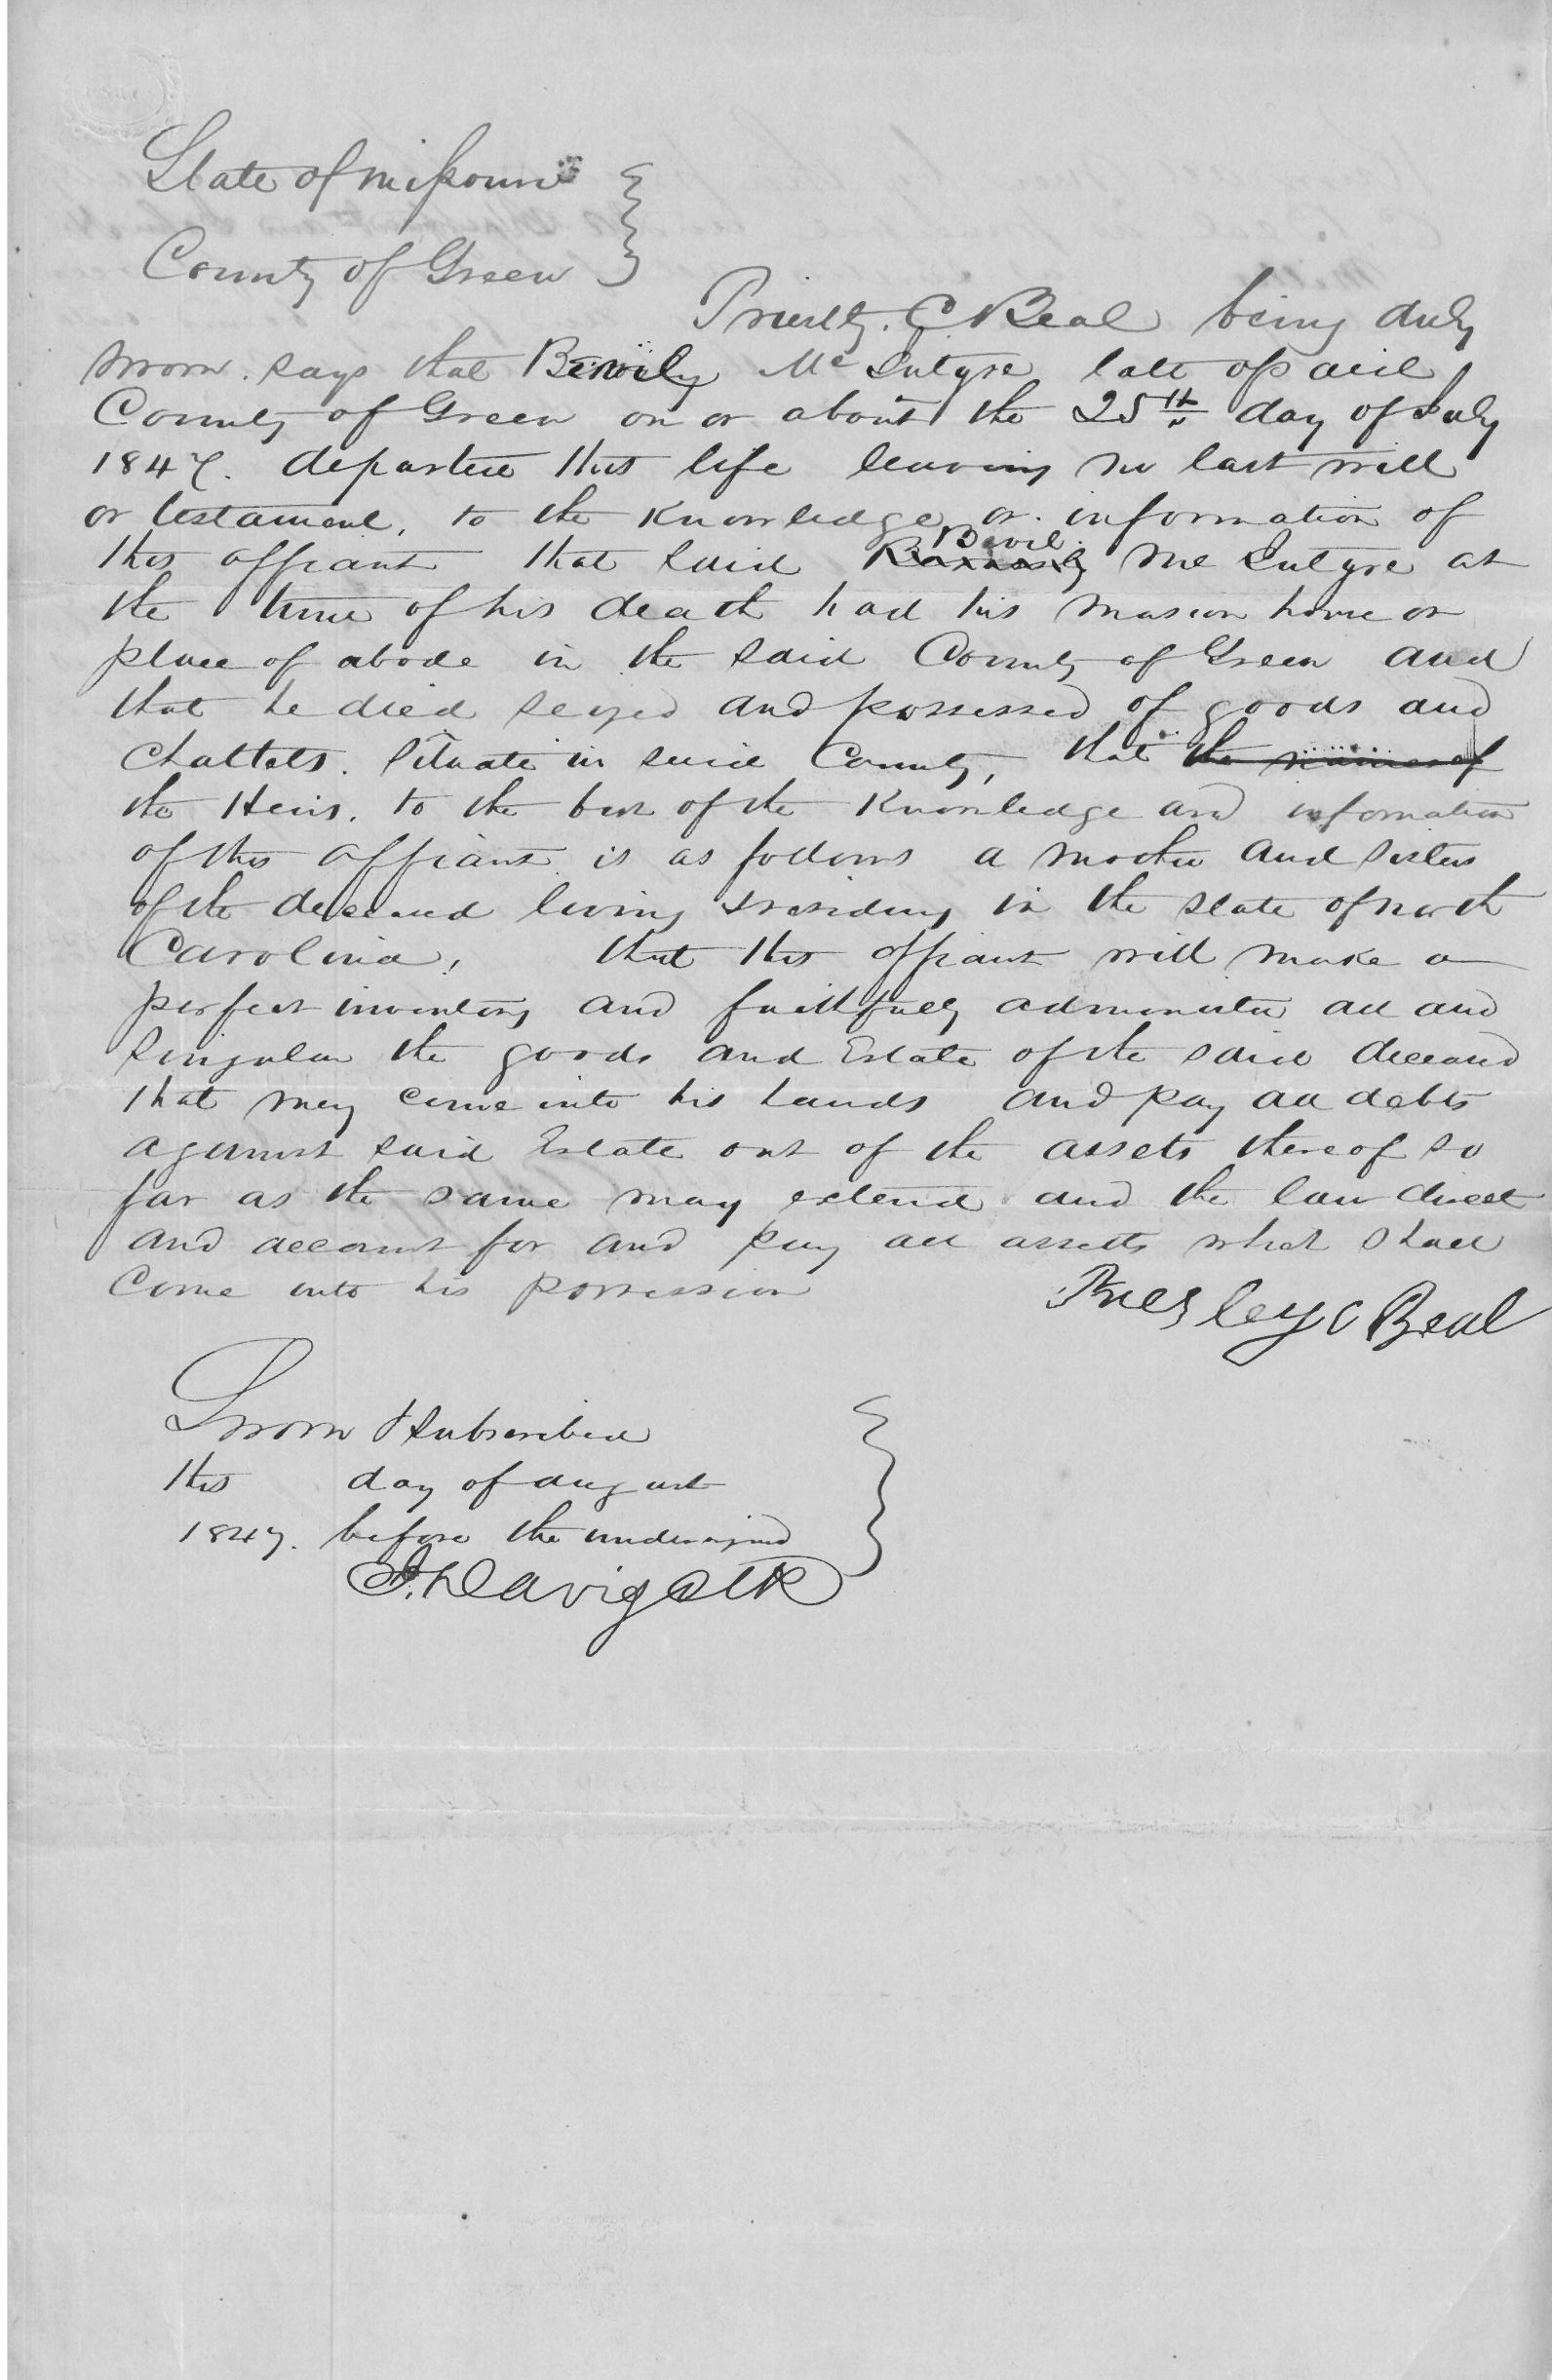 State of Missouri
County of Green
Priestly. C Beal being duly
sworn. says that Bevily Mc Intyre late of said
County of Green on or about the 25th day of July
1847. departed this life leaving no last will
or testament, to the Knowledge or information of
this affiant that said Bevil Mc Intyre at
the time of his death had his masion house or
place of abode in the said County of Green and
that he died seized and possessed of goods and
Chattels. Situate in said County, that the names of
the Heirs. to the best of the Knowledge and information
of this affiant is as follows a mother and sisters
of the deceased living & residing in the state of north
Carolina, that this affiant will make a
perfect inventory and faithfully administer all and
Singular the goods and Estate of the said deceased
that may come into his hands and pay all debts
against said Estate out of the assets thereof so
far as the same may extend and the law direct
and account for and pay all assetts which shall
Come into his possession
Presley C Beal
Sworn & Subscribed
this day of august
1847. before the undersigned
J. Davis Clk